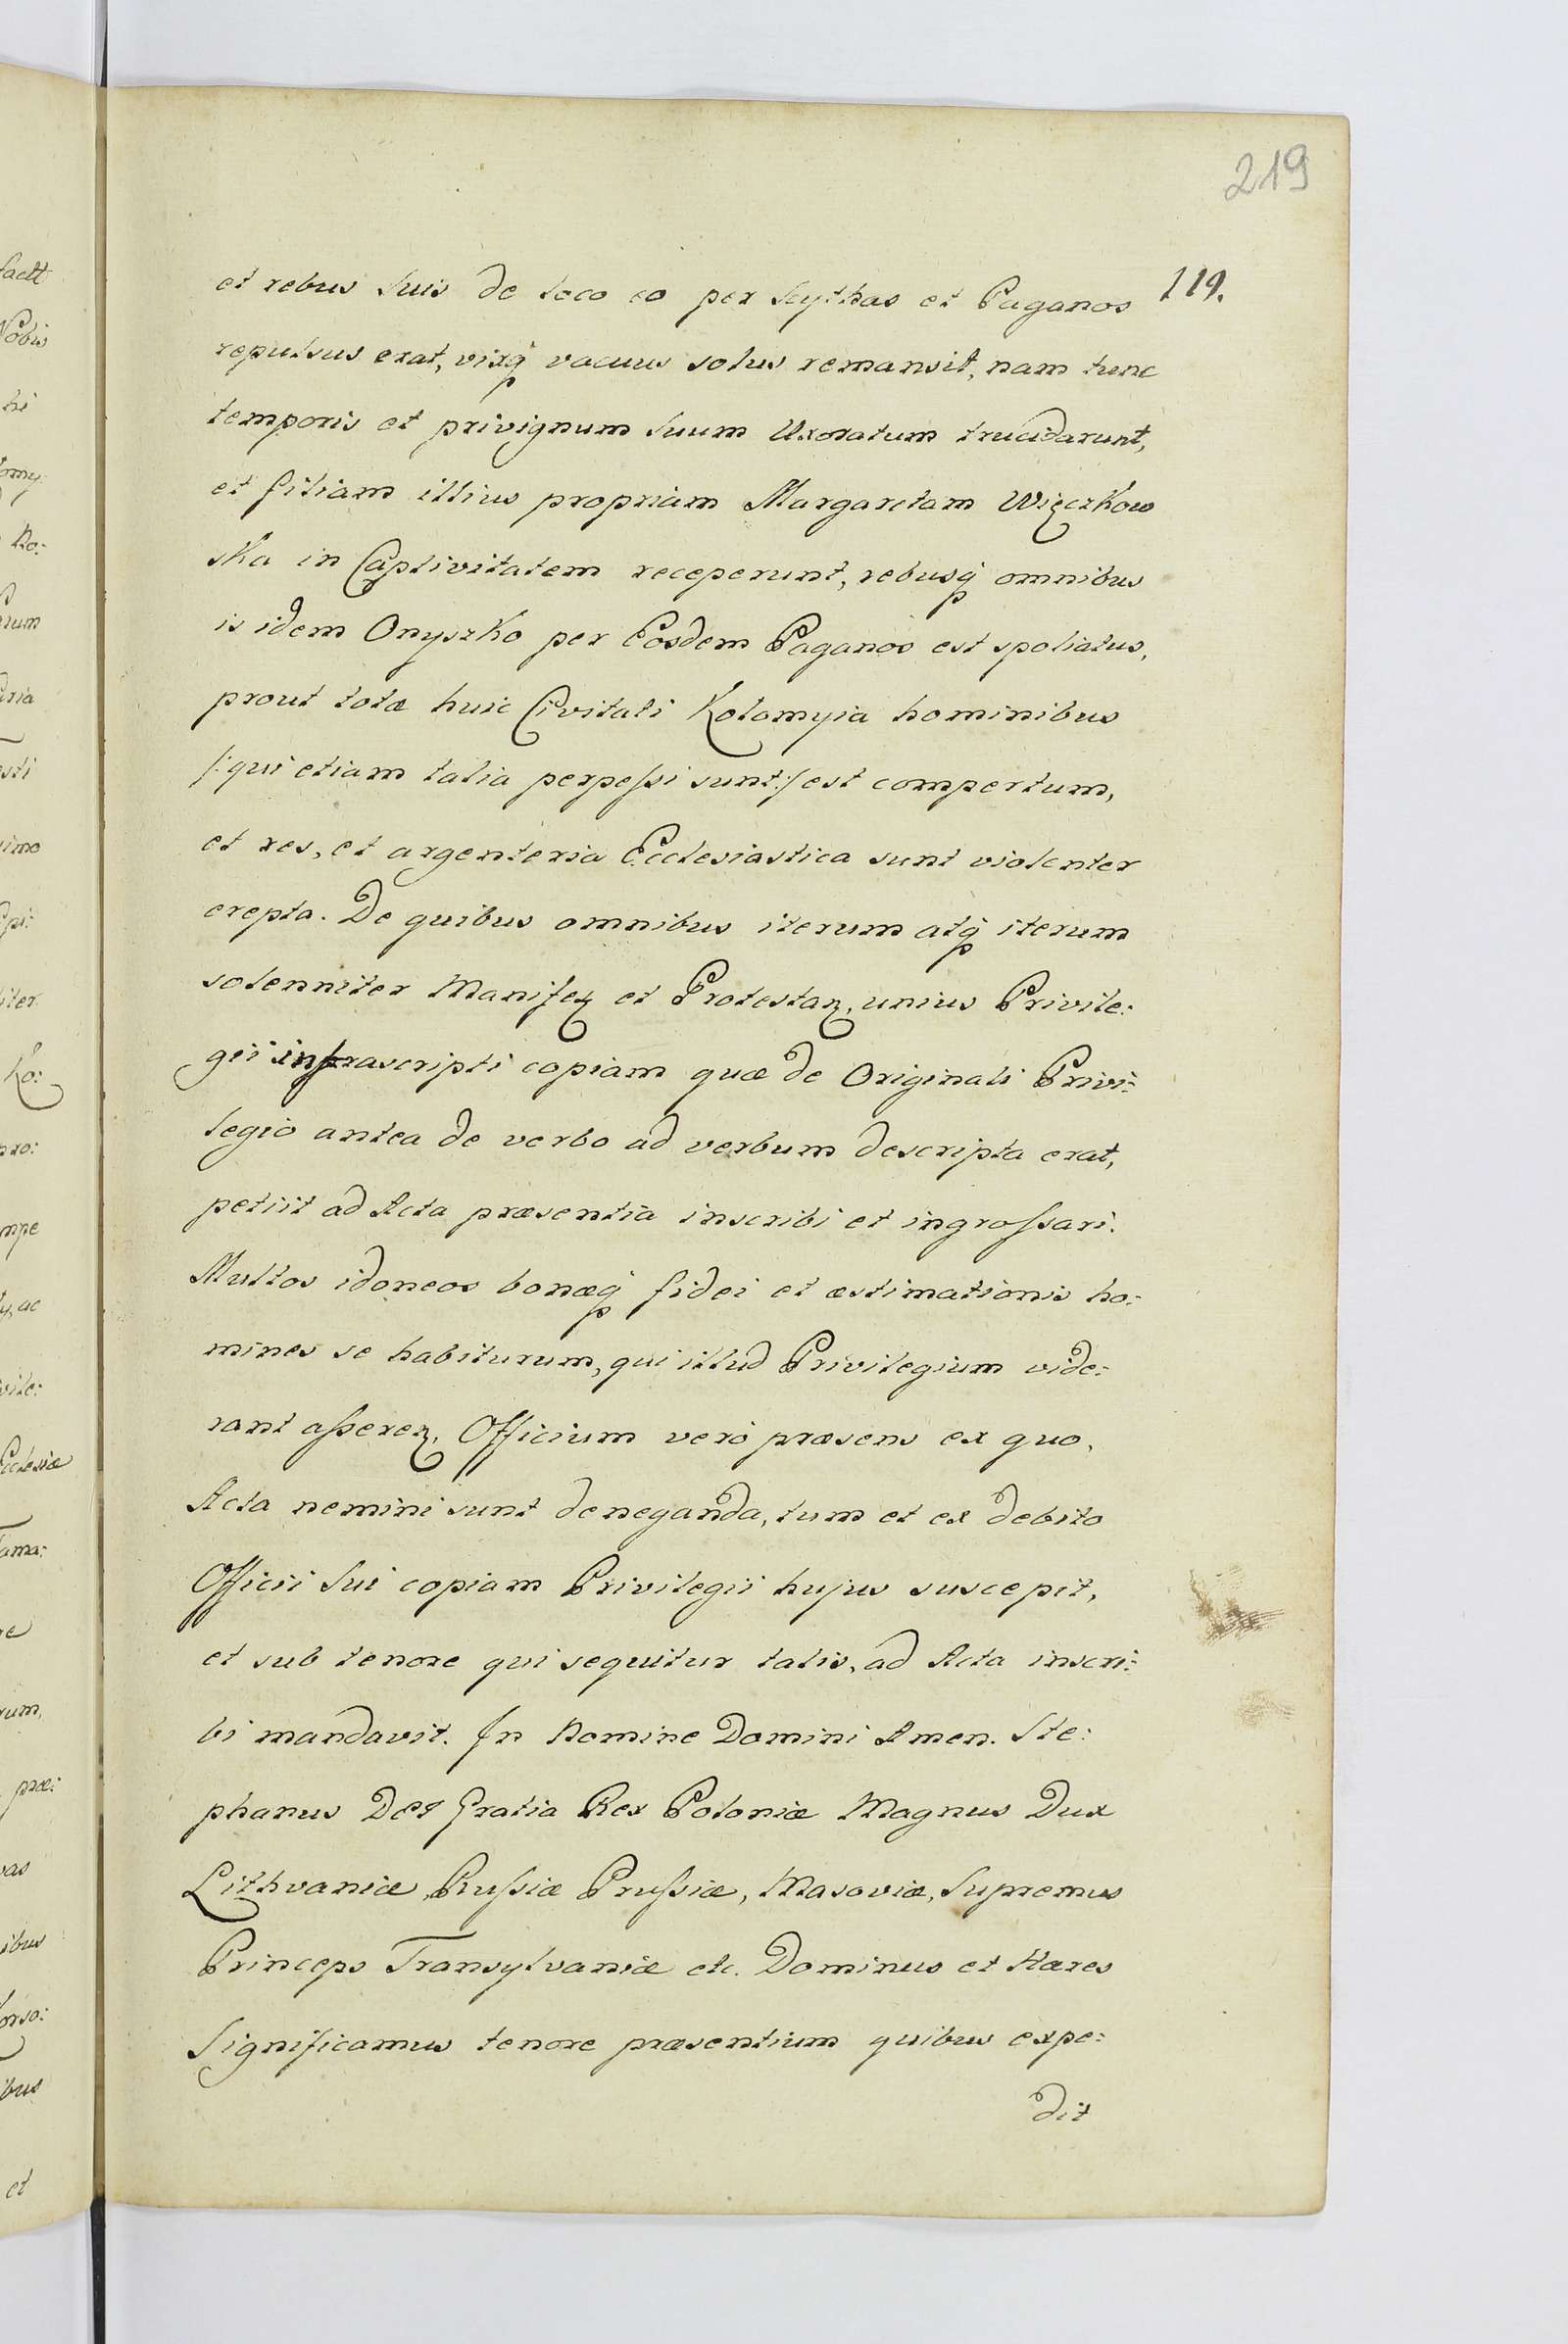 219
119.
et rebus suis de loco eo per Scythas et Paganos
repulsus erat, vixq́ vacuus solus remansit, nam tunc
temporis et privignum suum Uxoratum trucidarunt,
et filiam illius propriam Margaretam Więczkow
ska in Captivitatem receperunt, rebusq́ omnibus
is idem Onyszko per Eosdem Paganos est spoliatus,
prout totæ huic Civitati Kolomyia hominibus
/: qui etiam talia perpeſsi sunt :/ est compertum,
et res, et argenteria Ecclesiastica sunt violenter
erepta. De quibus omnibus iterum atq́ iterum
solenniter Manifeꝫ et Protestaꝫ, unius Privile:
gii infrascripti copiam quæ de Originali Privi:
legio antea de verbo ad verbum descripta erat,
petiit ad Acta præsentia inscribi et ingroſsari.
Multos idoneos bonæq́ fidei et æstimationis ho:
mines se habiturum, qui illud Privilegium vide:
rant aſsereꝫ. Officium verò præsens ex quo,
Acta nemini sunt deneganda, tum et ex debito
Officii sui copiam Privilegii hujus suscepit,
et sub tenore qui sequitur talis, ad Acta inscri:
bi mandavit. In Nomine Domini Amen. Ste:
phanus Dei Gratia Rex Poloniæ Magnus Dux
Lithvaniæ, Ruſsiæ Pruſsiæ, Masoviæ, Supremus
Princeps Transylvaniæ etc. Dominus et Hæres
Significamus tenore præsentium quibus expe:
dit